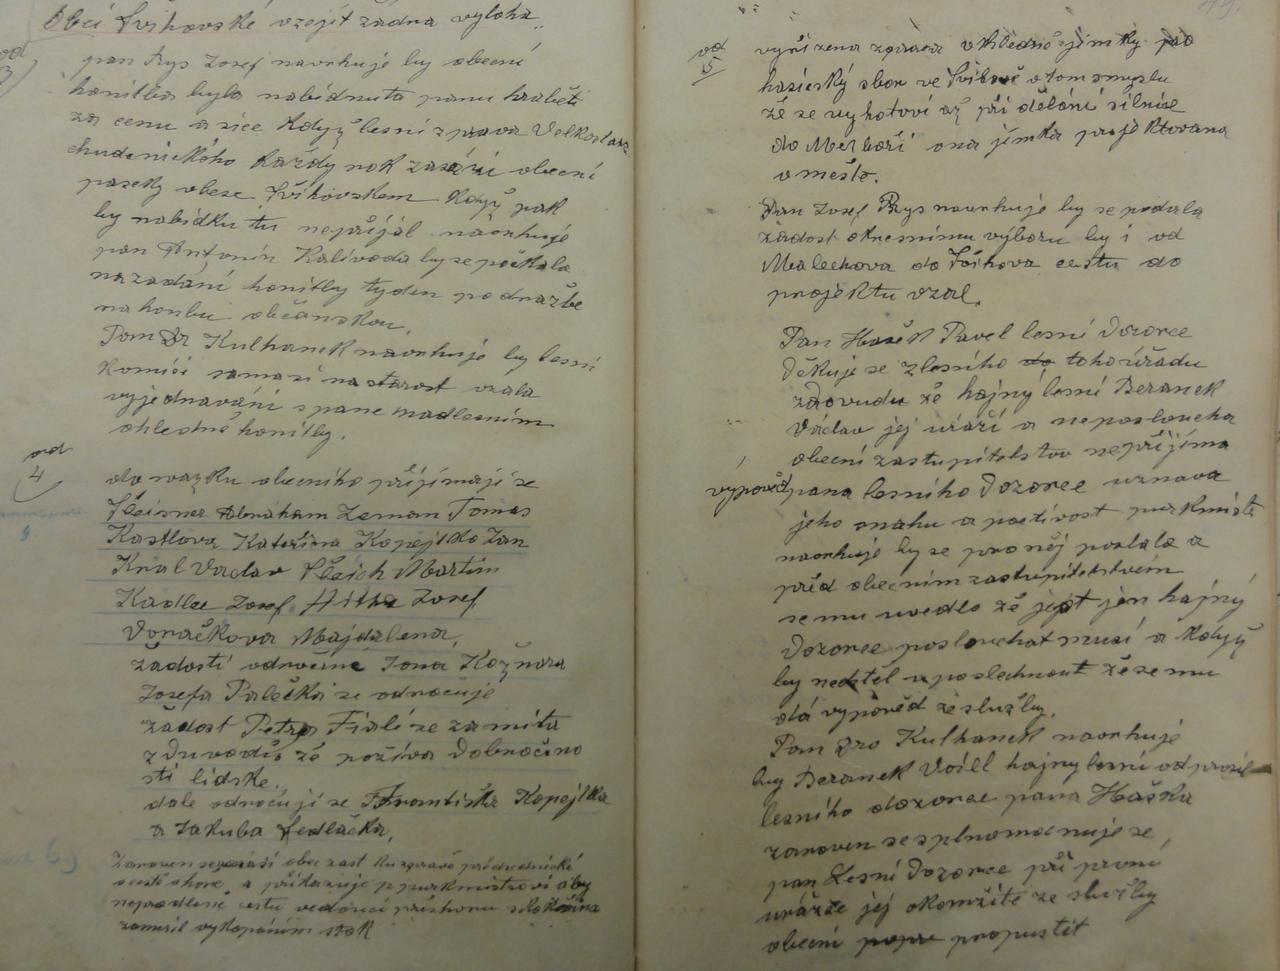 Obci Švihovské vzejít žádna vyloha.
ad
3)
pan Rys Josef navrhuje by obecní
honitba byla nabídnuta panu hraběti
za cenu a sice když lesní zprava Velkostatk
chudenického každý rok zasází obecní
paseky v lese Švihovském když pak
by nabídku tu nepřijal navrhuje
pan Antonín Kalivoda by se počkala
na zadání honitby tyden po dražbe
na honbu občanskou.
Pan Dr Kulhanek navrhuje by lesní
komisí sama si na starost vzala
vyjednavání s panem nadlesním
ohledně honitby.
ad
4
do svazku obecního přijímají se
Fleisner Abraham Zeman Tomas
Kastlova Kateřina Kopejtko Jan
Kral Vaclav Šleich Martin
Kadlec Josef Josef
Voračkova Majdalena,
žádosti odročené Jona Kožnara
Josefa Palečka se odročuje
žadost Petra Fialí se zamita
z Duvodu že požíva Dobročino
sti lidske.
dale odročují se Františka Kopejtka
a Jakuba Sedlačka.
Zároveň obec. zast. ku zprávě
a přikazuje p. purkmistrovi aby
neprodleně cestu vedoucí
zamezil vykopáním stok
ad
5
vyřízena zprava v ohledně jímky pro
hasičský sbor ve Švihově v tom smyslu
že se vyhotoví až při dělání silnice
do Mezhoří ona jímka projektovana
v městě.
Pan Josef Rys navrhuje by se podala
žadost okresnímu výboru by i od
Malechova do Švihova cestu do
projektu vzal.
Pan Hašek Pavel lesní Dozorce
Děkuje se z lesního do tohoto úřadu
z duvodu že hajný lesní Beranek
Václav jej uráží a neposloucha
obecní zastupitelstvo nepřijíma
vypověď pana lesního Dozorce uznava
jeho snahu a poctivost purkmistr
navrhuje by se pro něj poslalo a
před obecním zastupitelstvem
se mu uvedlo že jest jen hajný
Dozorce poslouchat musí a když
by nechtěl uposlechnout že se mu
dá vypověd ze služby.
Pan Dro Kulhanek navrhuje
by Beranek hajny lesní odprosil
lesního dozorce pana Haška
zaroven se splnomocnuje se
pan Lesní Dozorce při první
urážce jej okamžitě ze služby
obecní propustit